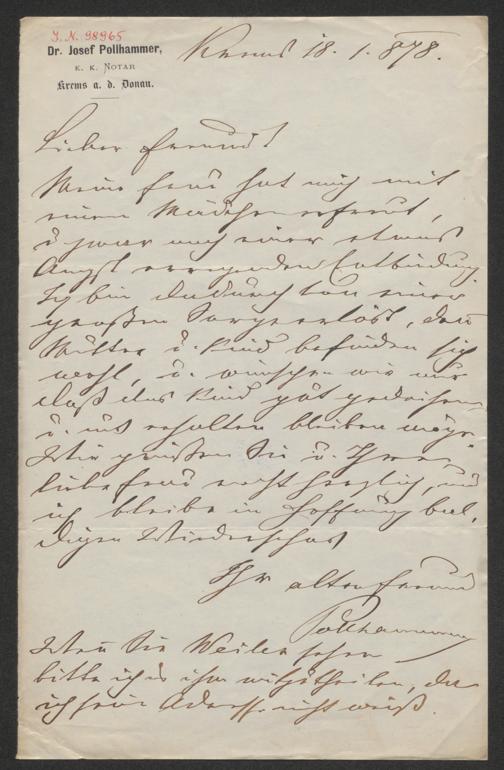 I. N. 98965
Dr. Josef Pollhammer,
K. K. NOTAR
Krems a. d. Donau.
Krems 18. 1. 878.
Lieber Freund!
Meine Frau hat mich mit
einem Mädchen erfreut,
u zwar nach einer etwas
Angst erregenden Entbindung.
Ich bin dadurch von einer
großen Sorge erlöst, denn
Mutter u. Kind befinden sich
wohl, u. wünschen wir nur
daß das Kind gut gedeihen
u. uns erhalten bleiben möge.
Wir grüßen Sie u. Ihre
liebe Frau recht herzlich, und
ich bleibe in Hoffnung bal,
digen Wiedersehens
Ihr alter Freund
Pollhammer
Wenn Sie Weilen sehen
bitte ich es ihm mitzutheilen, da
ich seine Adresse nicht weiß.